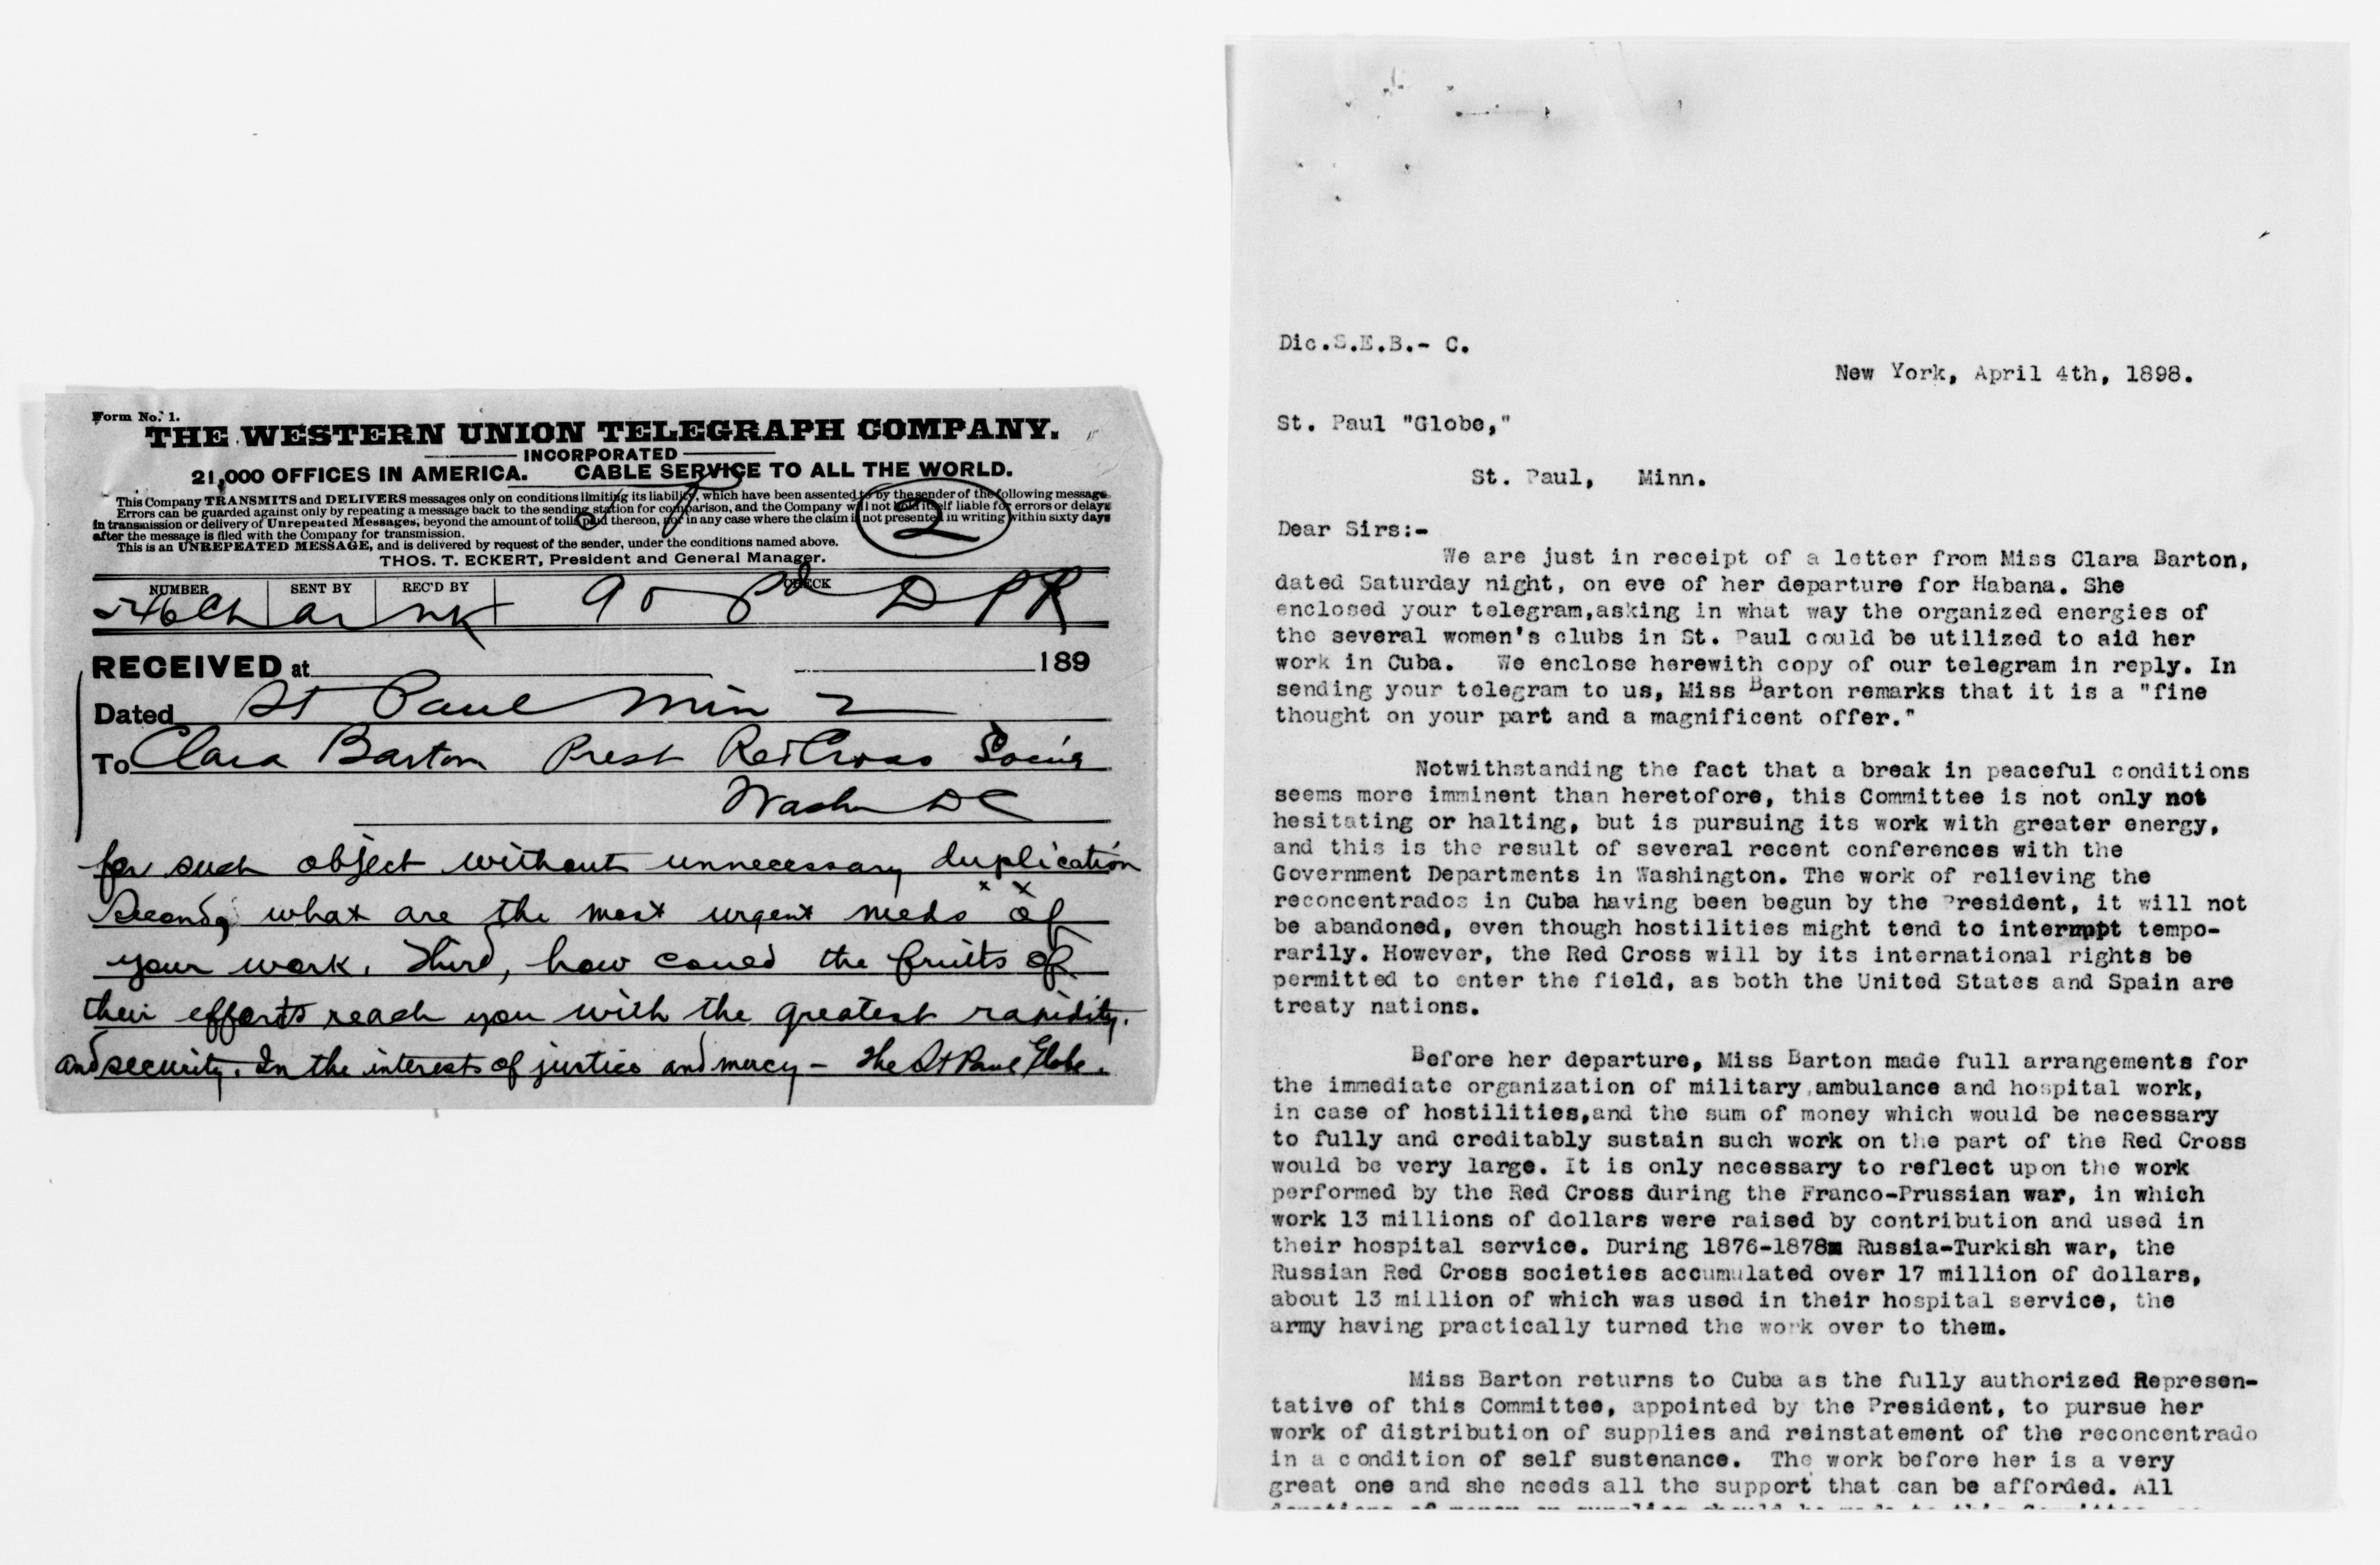 Form No. 1.
THE WESTERN UNION TELEGRAPH COMPANY.
INCORPORATED
21,000 OFFICES IN AMERICA. CABLE SERVICE TO ALL THE WORLD.
This Company TRANSMITS and DELIVERS messages only on conditions limiting its liability, which have been assented to by the sender of the following message.
Errors can be guarded against only by repeating a message back to the sending station for comparison, and the Company will not hold itself liable for errors or delays
in transmission or delivery of Unrepeated Messages, beyond the amount of tolls paid thereon, nor in any case where the claim is not presented in writing within sixty days
after the message is filed with the Company for transmission.
This is an UNREPEATED MESSAGE, and is delivered by request of the sender, under the conditions named above.
THOS. T. ECKERT, President and General Manager.
2
NUMBER SENT BY REC'D BY CHECK
90 pd DPR
RECEIVED at 189
Dated St Paul Min 2
To Clara Barton Prest Red Cross
Washn DC
for such object without unnecessary duplication
Second, what are the most urgent needs of
your work. Third, how could the fruits of
their efforts reach you with the greatest rapidity.
and security. In the interests of justice and mercy - The St Paul Globe.
Dic.S.E.B.- C.
New York, April 4th, 1898.
St. Paul "Globe,"
St. Paul, Minn.
Dear Sirs:-
We are just in receipt of a letter from Miss Clara Barton,
dated Saturday night, on eve of her departure for Habana. She
enclosed your telegram,asking in what way the organized energies of
the several women's clubs in St. Paul could be utilized to aid her
work in Cuba. We enclose herewith copy of our telegram in reply. In
sending your telegram to us, Miss Barton remarks that it is a "fine
thought on your part and a magnificent offer."
Notwithstanding the fact that a break in peaceful conditions
seems more imminent than heretofore, this Committee is not only not
hesitating or halting, but is pursuing its work with greater energy,
and this is the result of several recent conferences with the
Government Departments in Washington. The work of relieving the
reconcentrados in Cuba having been begun by the President, it will not
be abandoned, even though hostilities might tend to interrupt tempo-
rarily. However, the Red Cross will by its international rights be
permitted to enter the field, as both the United States and Spain are
treaty nations.
Before her departure, Miss Barton made full arrangements for
the immediate organization of military,ambulance and hospital work,
in case of hostilities,and the sum of money which would be necessary
to fully and creditably sustain such work on the part of the Red Cross
would be very large. It is only necessary to reflect upon the work
performed by the Red Cross during the Franco-Prussian war, in which
work 13 millions of dollars were raised by contribution and used in
their hospital service. During 1876-1878 Russia-Turkish war, the
Russian Red Cross societies accumulated over 17 million of dollars,
about 13 million of which was used in their hospital service, the
army having practically turned the work over to them.
Miss Barton returns to Cuba as the fully authorized Represen-
tative of this Committee, appointed by the President, to pursue her
work of distribution of supplies and reinstatement of the reconcentrado
in a condition of self sustenance. The work before her is a very
great one and she needs all the support that can be afforded. All